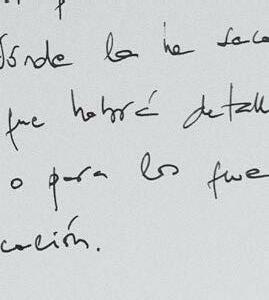 dónde la he saca
que habrá detall
o para los que
cación.